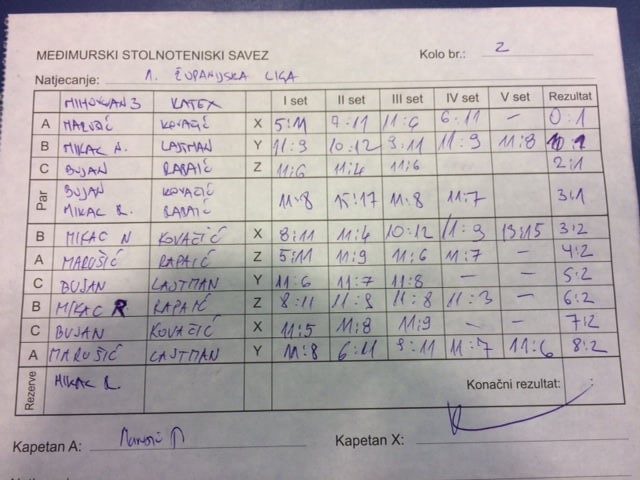 MEĐIMURSKI STOLNOTENISKI SAVEZ
Kolo br.: 2
Natjecanje: 1. ŽUPANIJSKA LIGA
MIHOVLJAN 3 KATEX I set II set III set IV set V set Rezultat
A MARUŠIĆ KOVAČIĆ X 5:11 9:11 11:6 6:11 – 0:1
B MIKAC N. LAJTMAN Y 11:9 10:12 9:11 11:9 11:8 1:1
C BUJAN RAPAIĆ Z 11:6 11:4 11:6 2:1
Par BUJAN KOVAČIĆ 11:8 15:17 11:8 11:7 3:1
MIKAC R. RAPAIĆ
B MIKAC N KOVAČIĆ X 8:11 11:4 10:12 11:9 13:15 3:2
A MARUŠIĆ RAPAIĆ Z 5:11 11:9 11:6 11:7 – 4:2
C BUJAN LAJTMAN Y 11:6 11:7 11:8 – – 5:2
B MIKAC R RAPAIĆ Z 8:11 11:8 11:8 11:3 – 6:2
C BUJAN KOVAČIĆ X 11:5 11:8 11:9 – – 7:2
A MARUŠIĆ LAJTMAN Y 11:8 6:11 9:11 11:7 11:6 8:2
Rezerve MIKAC R. Konačni rezultat: :
Kapetan A: Kapetan X: